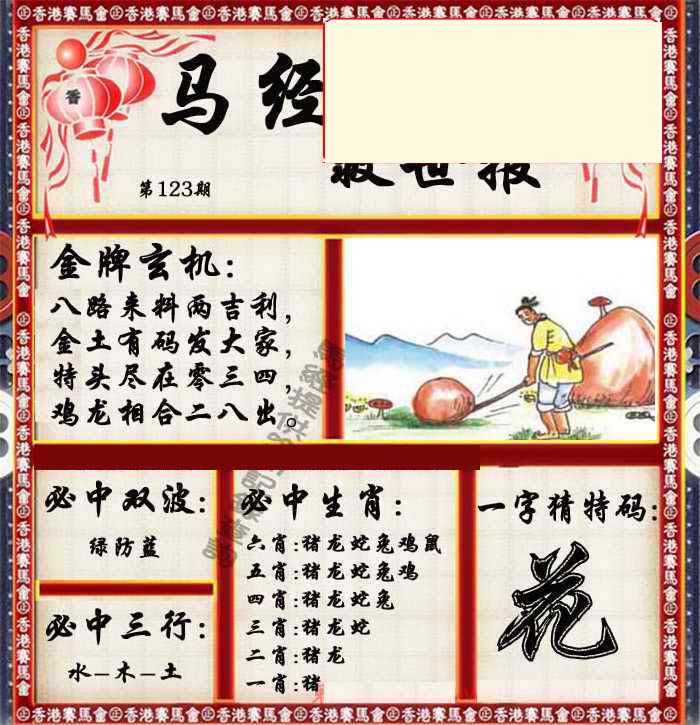 香港賽馬會
香
马经
最世报
第123期
金牌玄机：
八路来料两吉利，
金土有码发大家，
特头尽在零三四，
鸡龙相合二八出。
必中双波：
绿防蓝
必中三行：
水－木－土
必中生肖：
六肖:猪龙蛇兔鸡鼠
五肖:猪龙蛇兔鸡
四肖:猪龙蛇兔
三肖:猪龙蛇
二肖:猪龙
一肖:猪
一字猜特码：
花